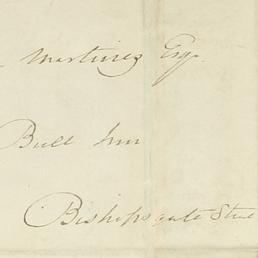 Martinez Esqr.
Bull Inn
Bishopsgate Stree